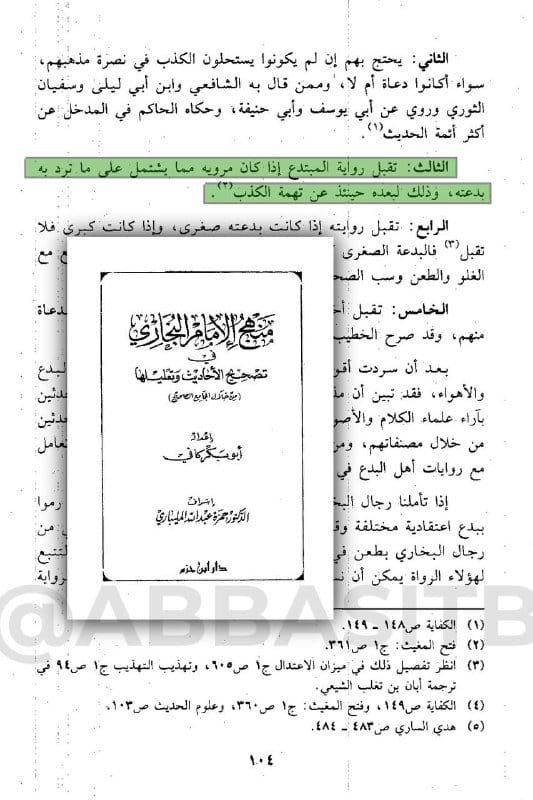 الثاني: يحتج بهم إن لم يكونوا يستحلون الكذب في نصرة مذهبهم،
سواء أكانوا دعاة أم لا، وممن قال به الشافعي وابن أبي ليلى وسفيان
الثوري وروي عن أبي يوسف وأبي حنيفة، وحكاه الحاكم في المدخل عن
أكثر أئمة الحديث(١).
الثالث: تقبل رواية المبتدع إذا كان مرويه مما يشتمل على ما ترد به
بدعته، وذلك لبعده حينئذ عن تهمة الكذب(٢).
الرابع: تقبل روايته إذا كانت بدعته صغرى، وإذا كانت كبرى فلا
تقبل(٣) فالبدعة الصغرى
مع
الغلو والطعن وسب
الخامس: تقبل
منهم، وقد صرح الخطيب
بعد أن سردت
البدع
والأهواء، فقد تبين أن
بآراء علماء الكلام
من خلال مصنفاتهم،
مع روايات أهل البدع في
إذا تأملنا رجال
رموا
ببدع اعتقادية مختلفة
من
رجال البخاري بطعن في
لهؤلاء الرواة يمكن أن
منهج الإمام البخاري
في
تصحيح الأحاديث وتعليلها
(من خلال الجامع الصحيح)
إعداد
أبو بكر كافي
إشراف
الدكتور حمزة عبد الله المليباري
دار ابن حزم
@ABBASITB
(١) الكفاية ص١٤٨ ـ ١٤٩.
(٢) فتح المغيث: ج١ ص٣٦١.
(٣) انظر تفصيل ذلك في ميزان الاعتدال ج١ ص٦٠٥، وتهذيب التهذيب ج١ ص٩٤ في
ترجمة أبان بن تغلب الشيعي.
(٤) الكفاية ص١٤٩، وفتح المغيث: ج١ ص٣٦٠، وعلوم الحديث ص١٠٣.
(٥) هدي الساري ص٤٨٣ ـ ٤٨٤.
١٠٤